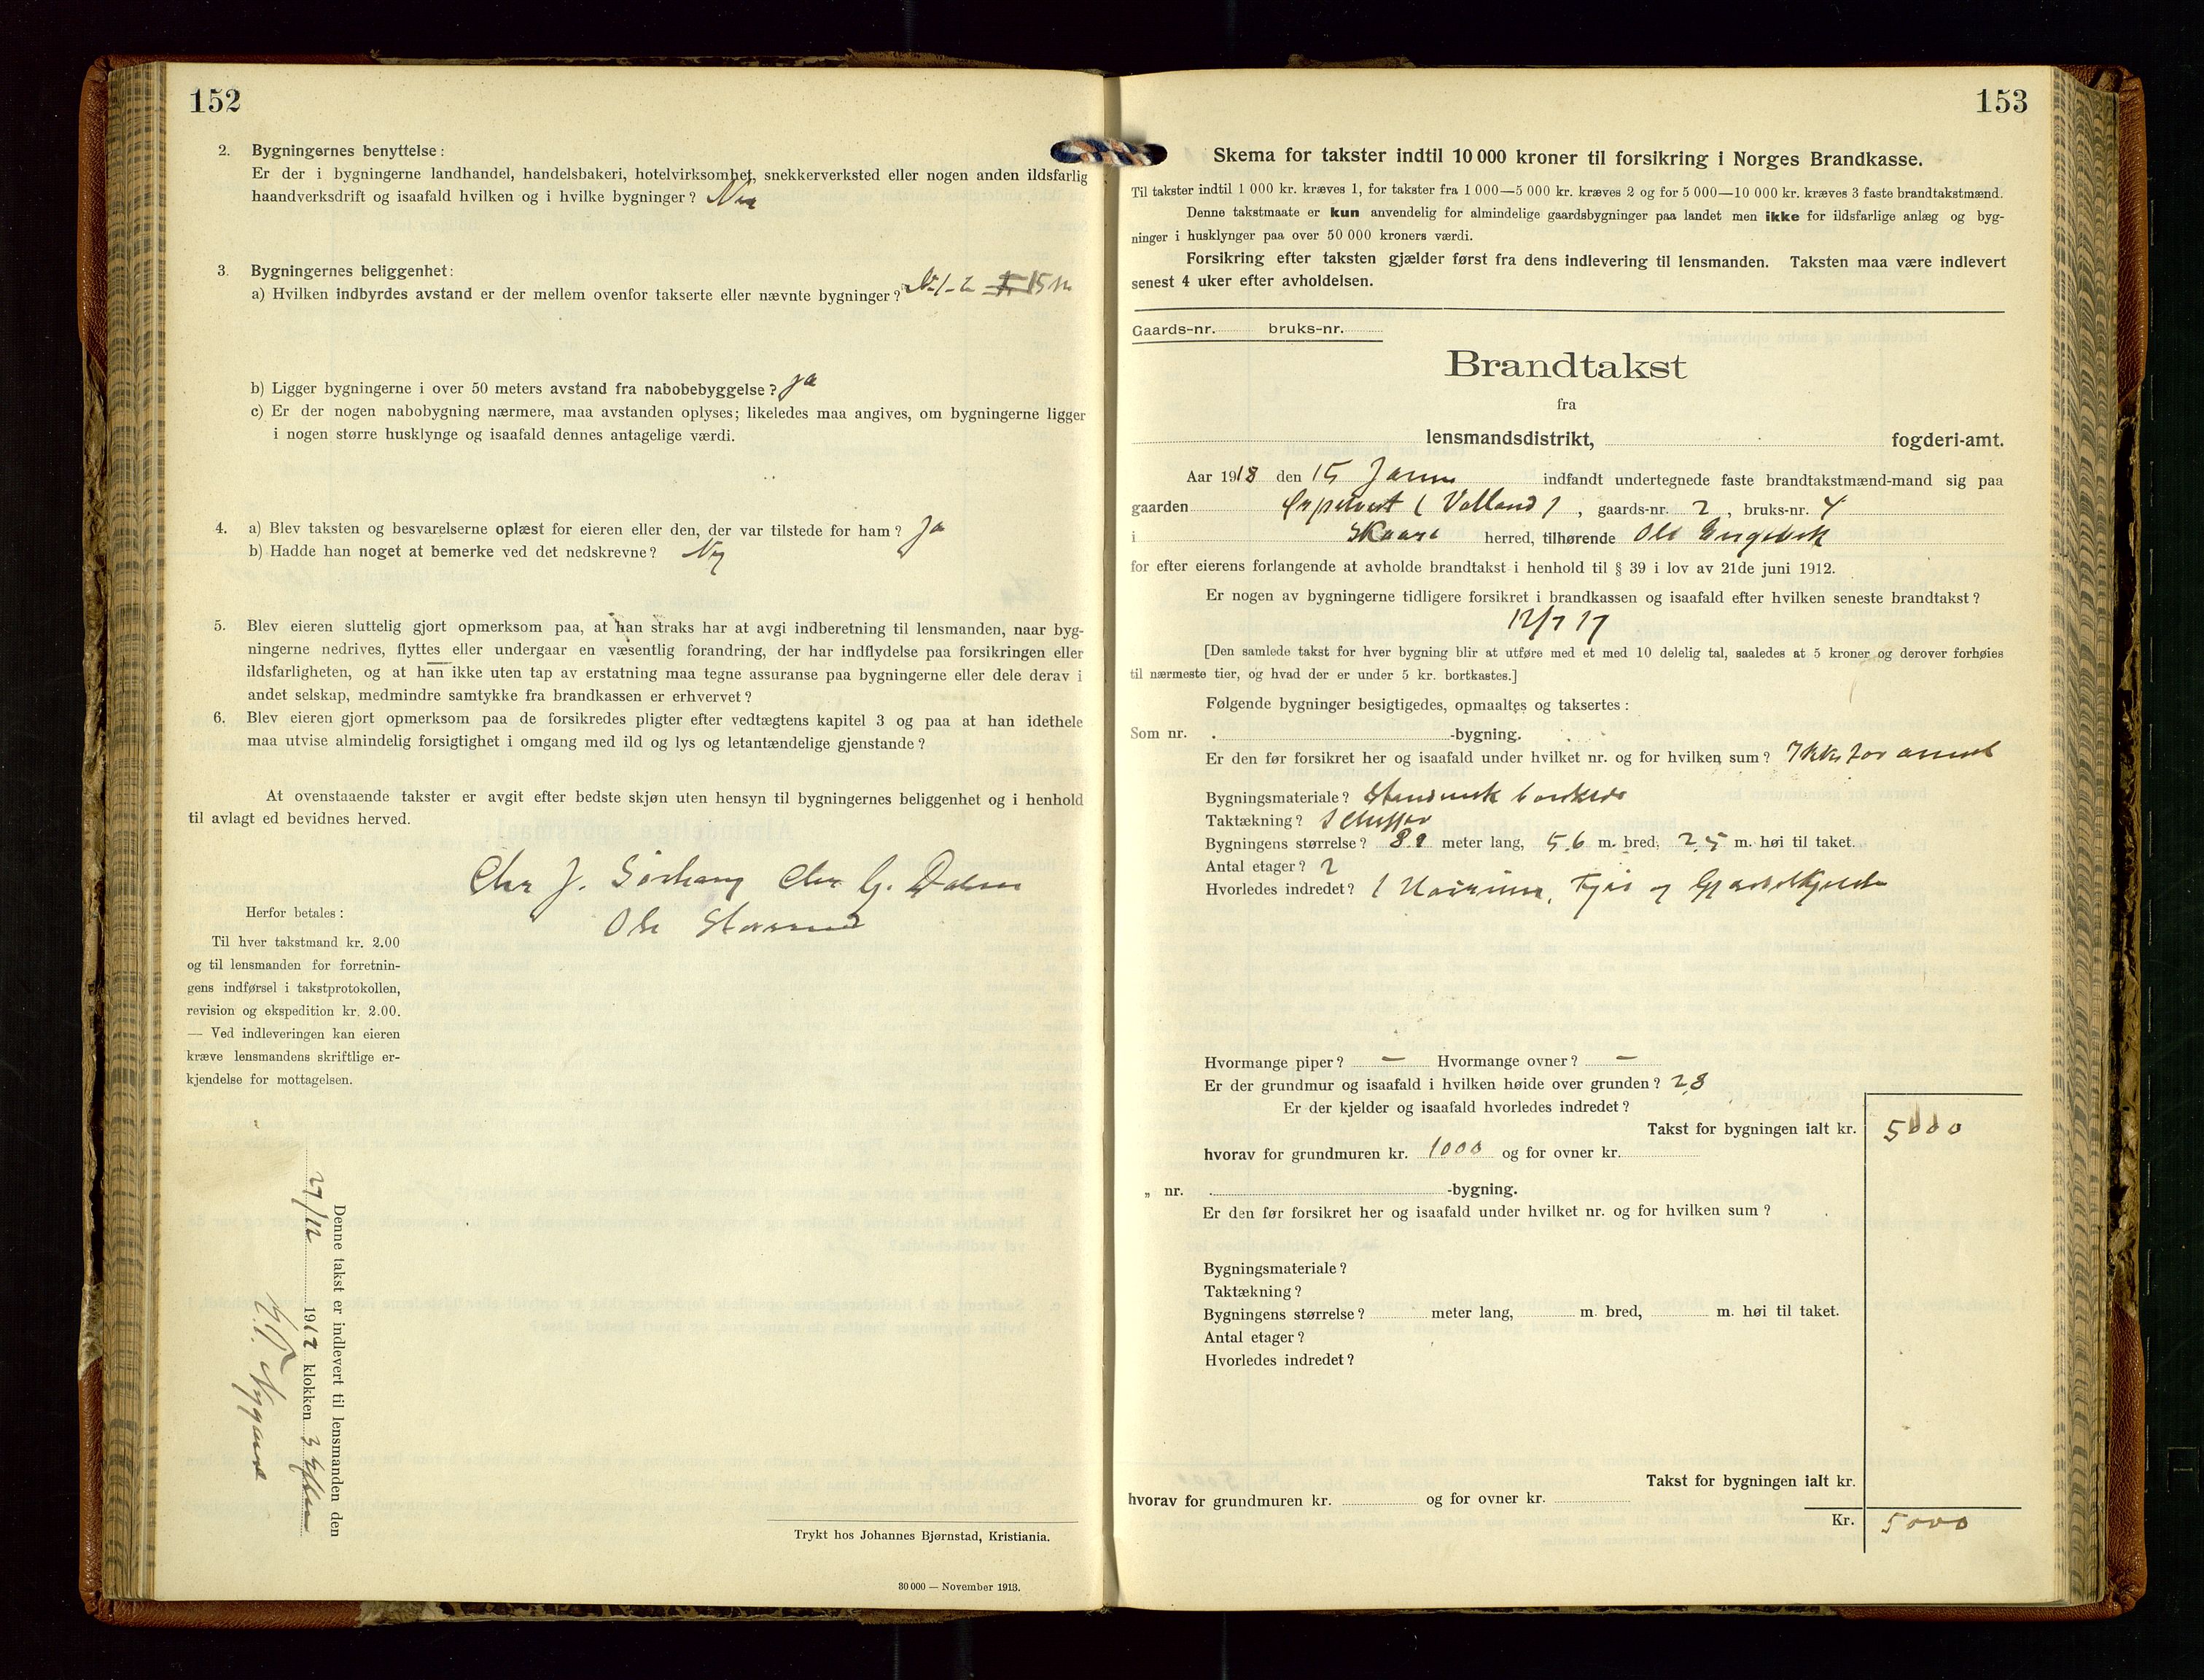 152
2. Bygningernes benyttelse:
Er der i bygningerne landhandel, handelsbakeri, hotelvirksomhet, snekkerverksted eller nogen anden ildsfarlig
haandverksdrift og isaafald hvilken og i hvilke bygninger?
3. Bygningernes beliggenhet:
a) Hvilken indbyrdes avstand er der mellem ovenfor takserte eller nævnte bygninger? No 1-2 15 m
b) Ligger bygningerne i over 50 meters avstand fra nabobebyggelse? ja
c) Er der nogen nabobygning nærmere, maa avstanden oplyses; likeledes maa angives, om bygningerne ligger
i nogen større husklynge og isaafald dennes antagelige værdi.
4. a) Blev taksten og besvarelserne oplæst for eieren eller den, der var tilstede for ham? Ja
b) Hadde han noget at bemerke ved det nedskrevne? Nej
5. Blev eieren sluttelig gjort opmerksom paa, at han straks har at avgi indberetning til lensmanden, naar byg-
ningerne nedrives, flyttes eller undergaar en væsentlig forandring, der har indflydelse paa forsikringen eller
ildsfarligheten, og at han ikke uten tap av erstatning maa tegne assuranse paa bygningerne eller dele derav i
andet selskap, medmindre samtykke fra brandkassen er erhvervet?
6. Blev eieren gjort opmerksom paa de forsikredes pligter efter vedtægtens kapitel 3 og paa at han idethele
maa utvise almindelig forsigtighet i omgang med ild og lys og letantændelige gjenstande?
At ovenstaaende takster er avgit efter bedste skjøn uten hensyn til bygningernes beliggenhet og i henhold
til avlagt ed bevidnes herved.
Chr J. Sørhaug Chr G.
Ole
Herfor betales:
Til hver takstmand kr. 2.00
og til lensmanden for forretnin-
gens indførsel i takstprotokollen,
revision og ekspedition kr. 2.00.
— Ved indleveringen kan eieren
kræve lensmandens skriftlige er-
kjendelse for mottagelsen.
Denne takst er indlevert til lensmanden den
27/12 1917 klokken 3 Efterm
Nygaard
Trykt hos Johannes Bjørnstad, Kristiania.
30 000 — November 1913.
153
Skema for takster indtil 10 000 kroner til forsikring i Norges Brandkasse.
Til takster indtil 1 000 kr. kræves 1, for takster fra 1 000—5 000 kr. kræves 2 og for 5 000—10 000 kr. kræves 3 faste brandtakstmænd.
Denne takstmaate er kun anvendelig for almindelige gaardsbygninger paa landet men ikke for ildsfarlige anlæg og byg-
ninger i husklynger paa over 50 000 kroners værdi.
Forsikring efter taksten gjælder først fra dens indlevering til lensmanden. Taksten maa være indlevert
senest 4 uker efter avholdelsen.
Gaards-nr. bruks-nr.
Brandtakst
fra
lensmandsdistrikt, fogderi-amt.
Aar 1918 den 15 Januar indfandt undertegnede faste brandtakstmænd-mand sig paa
gaarden (Volland), gaards-nr. 2, bruks-nr. 4
i Skaare herred, tilhørende Ole
for efter eierens forlangende at avholde brandtakst i henhold til § 39 i lov av 21de juni 1912.
Er nogen av bygningerne tidligere forsikret i brandkassen og isaafald efter hvilken seneste brandtakst?
12/7 17
[Den samlede takst for hver bygning blir at utføre med et med 10 delelig tal, saaledes at 5 kroner og derover forhøies
til nærmeste tier, og hvad der er under 5 kr. bortkastes.]
Følgende bygninger besigtigedes, opmaaltes og taksertes:
Som nr. -bygning.
Er den før forsikret her og isaafald under hvilket nr. og for hvilken sum?
Bygningsmateriale?
Taktækning?
Bygningens størrelse? meter lang, 5.6 m. bred, 2.5 m. høi til taket.
Antal etager? 2
Hvorledes indredet?
Hvormange piper? – Hvormange ovner? –
Er der grundmur og isaafald i hvilken høide over grunden? 2,8
Er der kjelder og isaafald hvorledes indredet?
Takst for bygningen ialt kr. 5000
hvorav for grundmuren kr. 1000 og for ovner kr.
„ nr. -bygning.
Er den før forsikret her og isaafald under hvilket nr. og for hvilken sum?
Bygningsmateriale?
Taktækning?
Bygningens størrelse? meter lang, m. bred, m. høi til taket.
Antal etager?
Hvorledes indredet?
Takst for bygningen ialt kr.
hvorav for grundmuren kr. og for ovner kr.
Kr. 5000